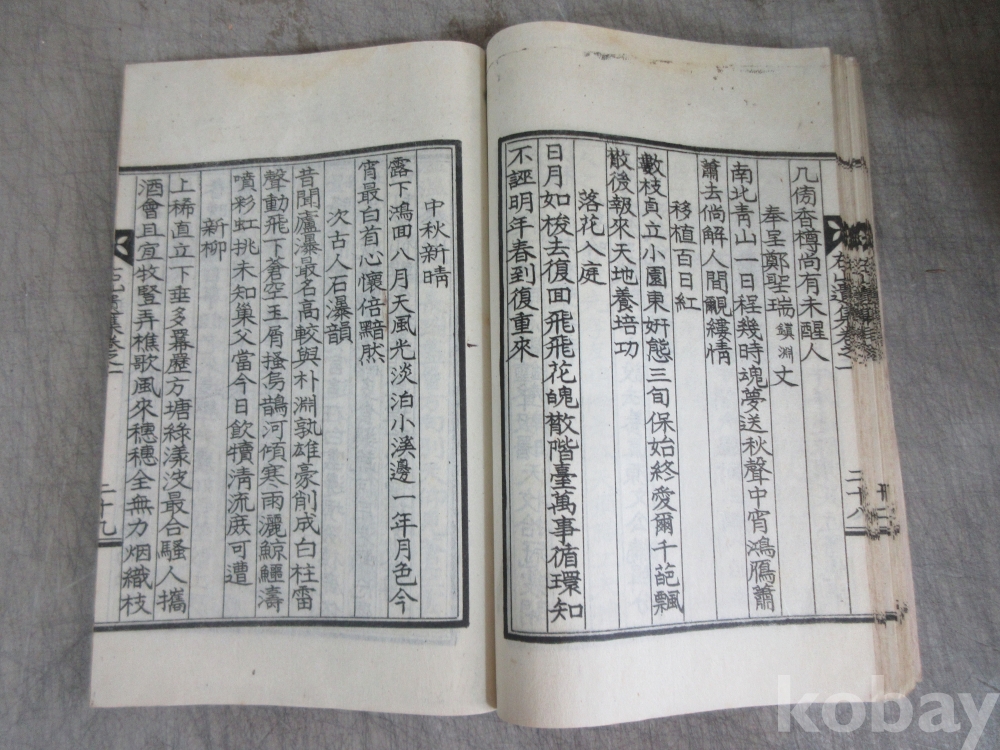 几傍香樽尚有未醒人
奉呈鄭聖瑞鎭淵丈
南北靑山一日程幾時魂夢送秋聲中宵鴻鴈蕭
蕭去倘解人間覼縷情
移植百日紅
數枝貞立小園東姸態三旬保始終愛爾千葩飄
散後報來天地養培功
落花入庭
日月如梭去復回飛飛花魄散階臺萬事循環知
不誣明年春到復重來
卷之一
二十八
中秋新晴
露下鴻回八月天風光淡泊小溪邊一年月色今
宵最白首心懷倍黯然
次古人石瀑韻
昔聞廬瀑最名高較與朴淵孰雄豪削成白柱雷
聲動飛下蒼空玉屑搔烏鵲河傾寒雨灑鯨鱷濤
噴彩虹挑未知巢父當今日飮犢淸流庶可遭
新柳
上稀直立下垂多羃歷方塘綠漾波最合騷人攜
酒會且宜牧豎弄樵歌風來穗穗全無力烟織枝
二十九
kobay